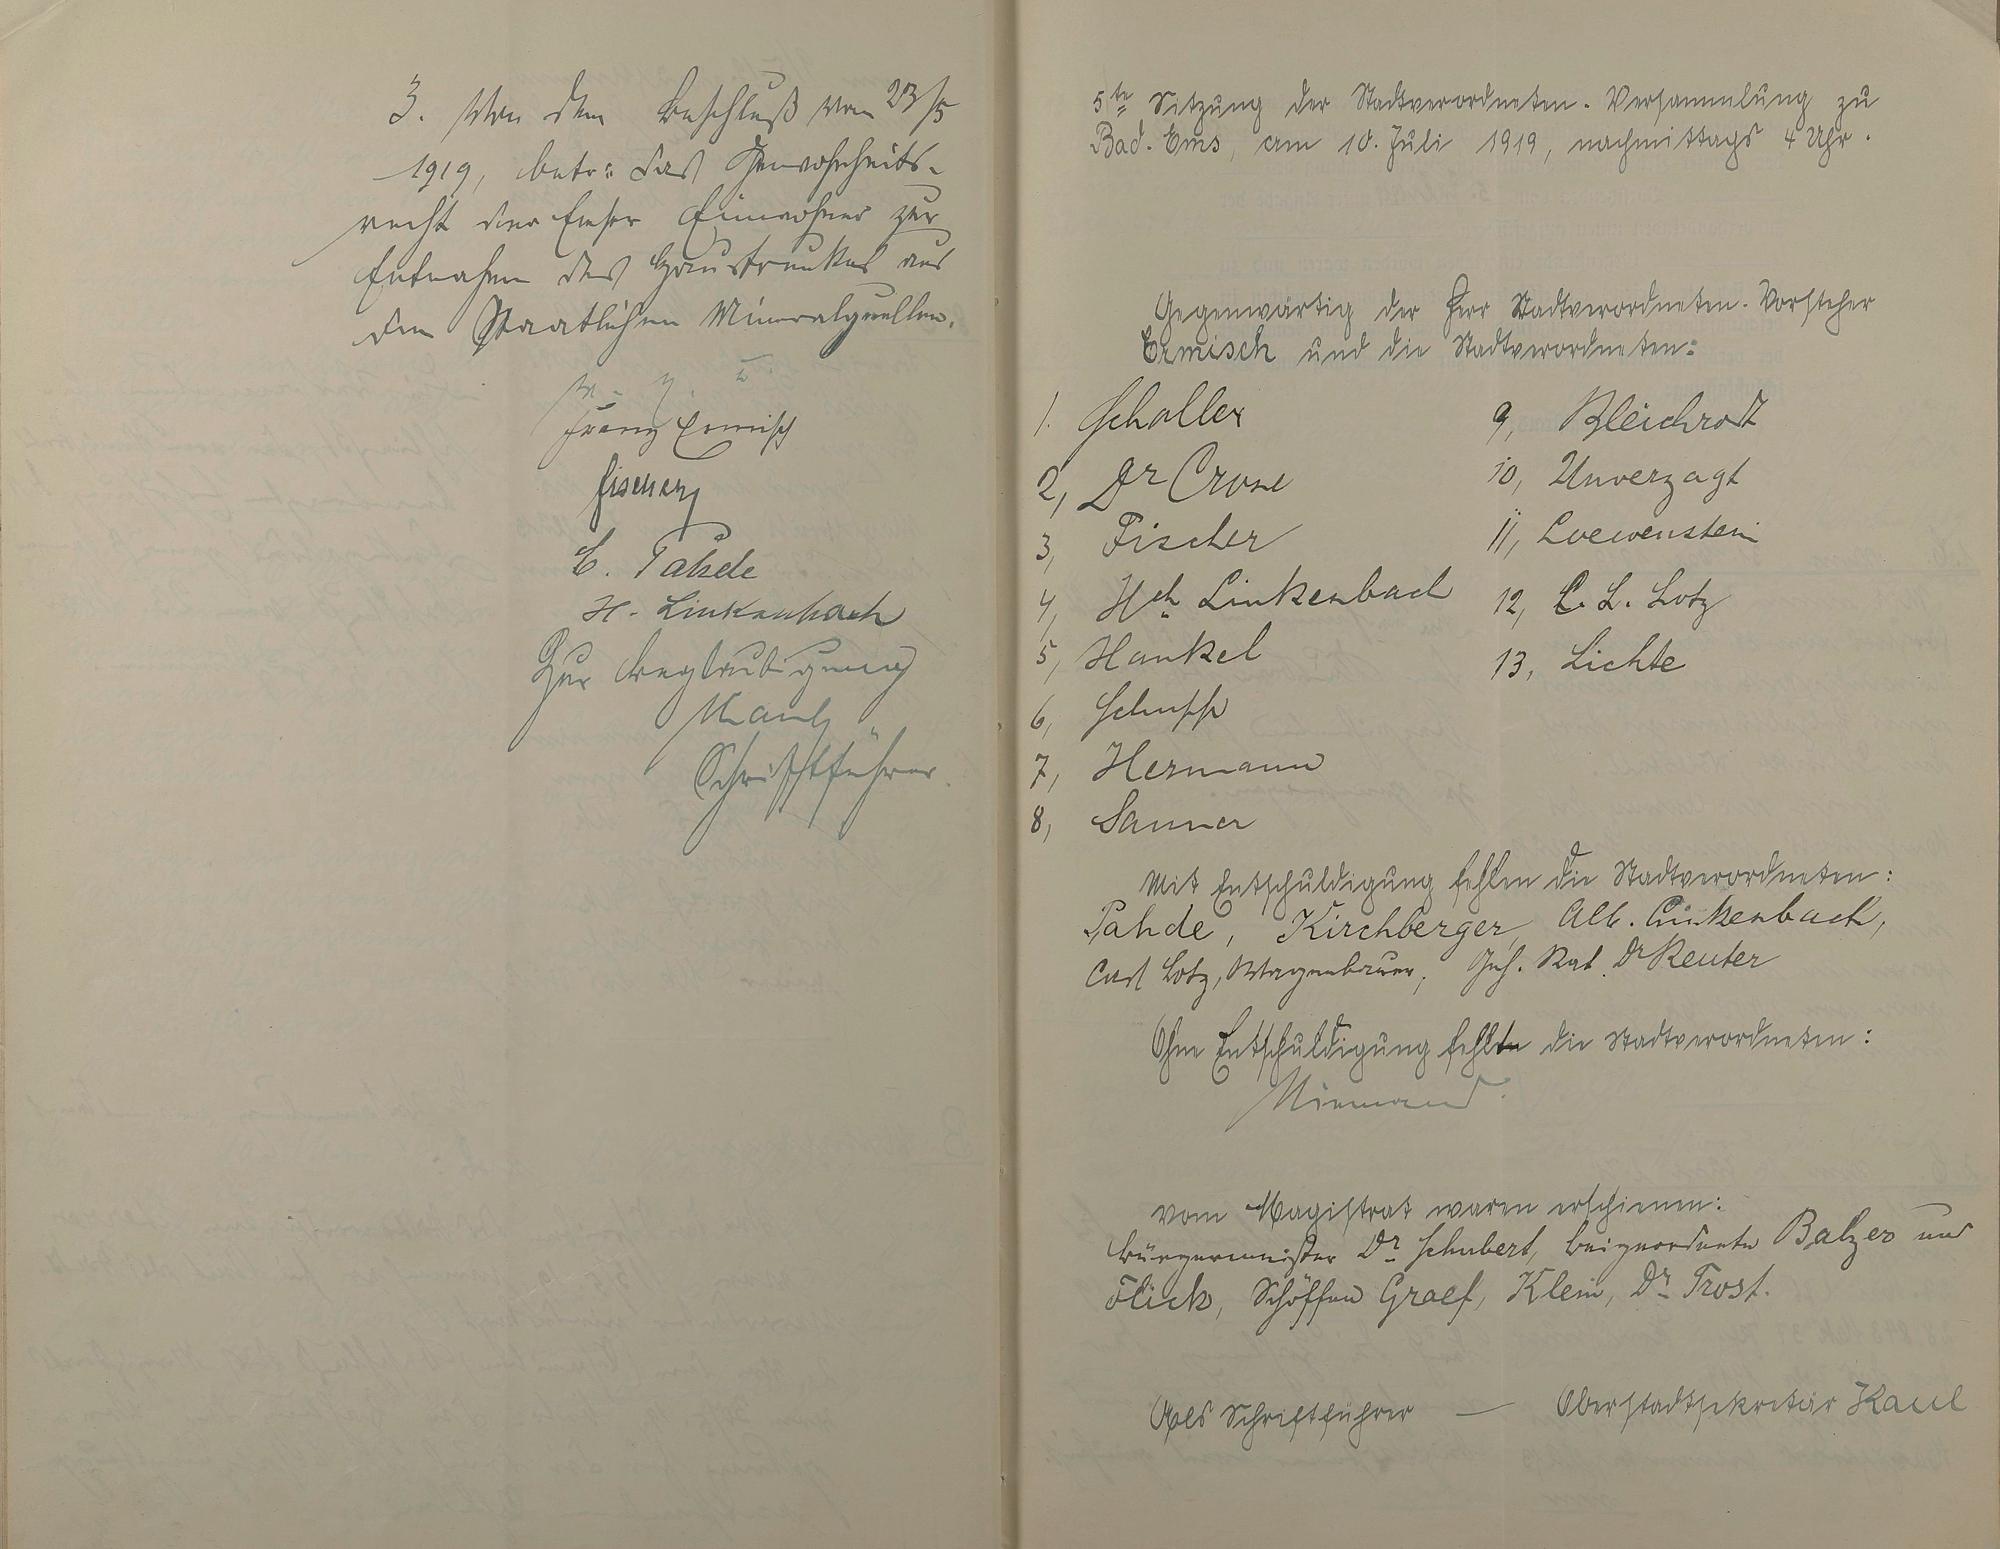 3. Von dem Beschluß vom 23/5
1919, betr: das Gewohnheits-
recht der Emser Einwohner zur
Entnahme des Haustrunkes aus
den Staatlichen Mineralquellen.
v. g. u.
Franz Ermisch
Fischer
C. Pahde
H. Linkenbach
Zur Beglaubigung
Kaul
Schriftführer.
5te Sitzung der Stadtverordneten-Versammlung zu
Bad-Ems, am 10. Juli 1919, nachmittags 4 Uhr.
Gegenwärtig der Herr Stadtverordneten-Vorsteher
Ermisch und die Stadtverordneten:
1. Schaller
2, Dr Crone
3, Fischer
4, Hch Linkenbach
5, Hankel
6, Schupp
7, Hermann
8, Sanner
9, Bleichrodt
10, Unverzagt
11, Loewenstein
12, C. L. Lotz
13, Lichte
Mit Entschuldigung fehlen die Stadtverordneten:
Pahde, Kirchberger, Alb. Linkenbach,
Carl Lotz, Wagenbauer, Geh. Rat Dr Reuter
Ohne Entschuldigung fehlte die Stadtverordneten:
Niemand.
Vom Magistrat waren erschienen:
Bürgermeister Dr Schubert, Beigeordnete Balzer und
Flick, Schöffen Graef, Klein, Dr Trost.
Als Schriftführer — Oberstadtsekretär Kaul